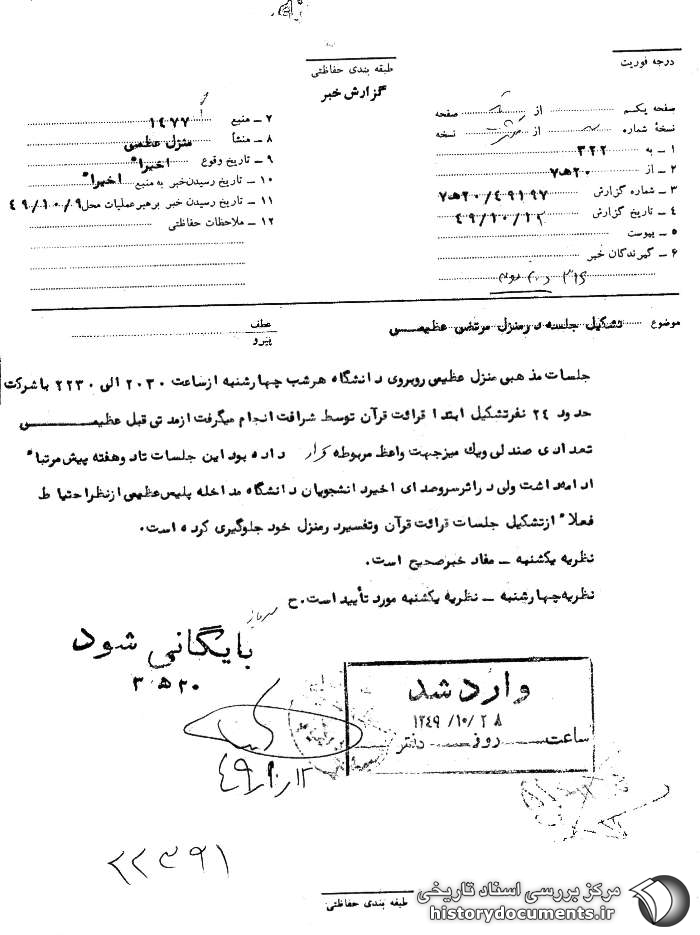 درجه فوریت
طبقه بندی حفاظتی
گزارش خبر
صفحه یکم از صفحه
نسخهٔ شماره از نسخه
۱ ـ به ۳۲۲
۲ ـ از ۲۰ﻫ۷
۳ ـ شماره گزارش ۲۰/۴۹۱۹۷ﻫ۷
۴ ـ تاریخ گزارش ۴۹/۱۰/۱۲
۵ ـ پیوست
۶ ـ گیرندگان خبر
۷ ـ منبع ۱۴۷۷
۸ ـ منشأ منزل عظیمی
۹ ـ تاریخ وقوع اخیراً
۱۰ ـ تاریخ رسیدن خبر به منبع اخیراً
۱۱ ـ تاریخ رسیدن خبر برهبر عملیات محل ۴۹/۱۰/۹
۱۲ ـ ملاحظات حفاظتی
موضوع تشکیل جلسه در منزل مرتضی عظیمی
عطف
پیرو
جلسات مذهبی منزل عظیمی روبروی دانشگاه هرشب چهارشنبه ازساعت ۲۰۳۰ الی ۲۲۳۰ با شرکت
حدود ۲۴ نفرتشکیل ابتدا قرائت قرآن توسط شرافت انجام میگرفت ازمدتی قبل عظیمی
تعدادی صندلی ویک میزجهت واعظ مربوطه قرار داده بود این جلسات تا دوهفته پیش مرتباً
ادامه داشت ولی در اثر سروصدای اخیر دانشجویان دانشگاه مداخله پلیس عظیمی ازنظر احتیاط
فعلاً از تشکیل جلسات قرائت قرآن وتفسیر در منزل خود جلوگیری کرده است.
نظریه یکشنبه ـ مفاد خبرصحیح است.
نظریه چهارشنبه ـ نظریه یکشنبه مورد تأیید است.ح
بایگانی شود
۲۰ﻫ۳
وارد شد
۱۳۴۹/۱۰/۲۸
ساعت روز دفتر
۴۹/۱۰/۱۲
۲۲۳۹۱
طبقه بندی حفاظتی
مرکز بررسی اسناد تاریخی
historydocuments.ir